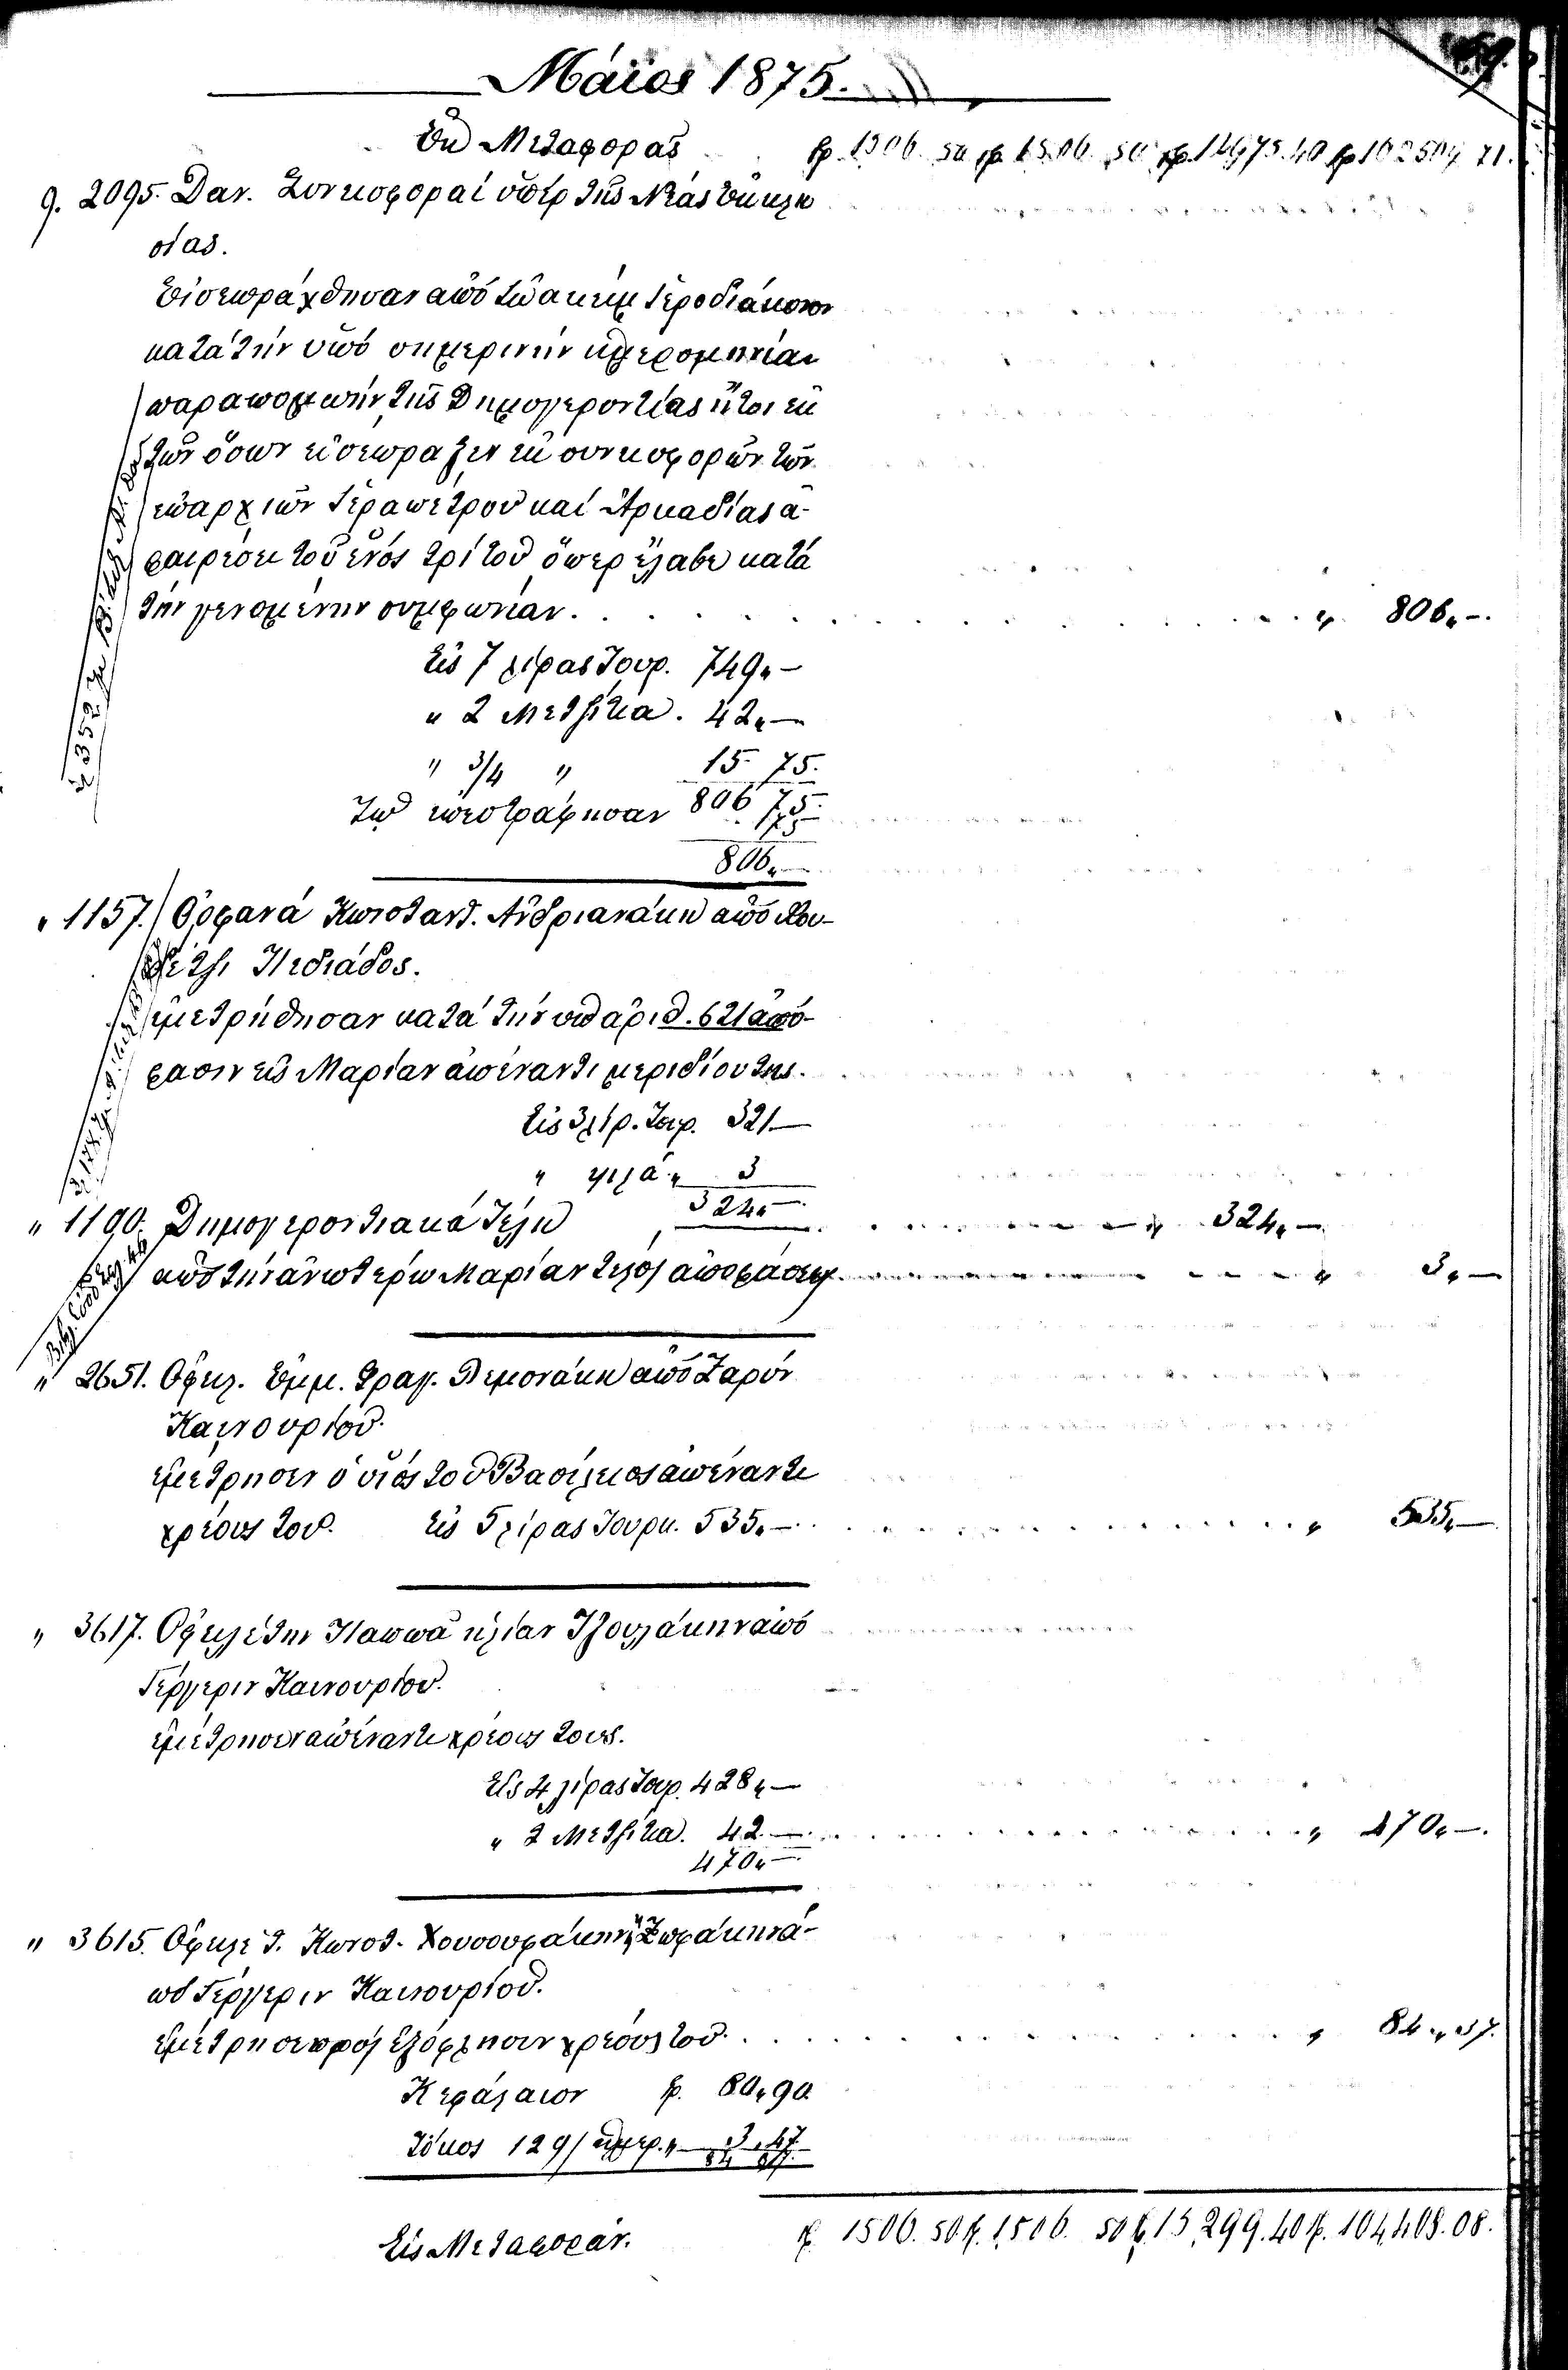 Μάϊος 1875.
Ἐκ Μεταφορᾶς γρ. 1506. 50 γρ. 1506. 50 γρ. 14,975.40 γρ. 102509 71.
9. 2095. Δαν. Συνεισφοραί ὑπέρ τῆς Νέας Ἐκκλη
σίας.
Εἰσεπράχθησαν ἀπό Ἰωακείμ Ἱεροδιάκονον
κατά τήν ὑπό σημερινήν ἡμερομηνίαν
παραπομπήν τῆς Δημογεροντίας ἤτοι ἐκ
τῶν ὅσων εἰσέπραξεν ἐκ συνεισφορῶν τῶν
ἐπαρχιῶν Ἱεραπέτρου καί Ἀρκαδίας ἀ-
φαιρέσει τοῦ ἑνός τρίτου ὅπερ ἔλαβε κατά
τήν γενομένην συμφωνίαν. " 806"-.
Εἰς 7 λίρας Τουρ. 749"-
" 2 Μετζίτια. 42"-
" 3/4 " 15 75.
Τῷ ἐπεστράφησαν 806 75.
" 75
806"-
" 1157. Ὀρφανά Κωνσταντ. Ἀνδριανάκη ἀπό Κου-
νέτζι Πεδιάδος.
ἐμετρήθησαν κατά τήν ὑπ ἀριθ. 621 ἀπό-
φασιν εἰς Μαρίαν ἀπέναντι μεριδίου της.
Εἰς 3 λίρ. Τουρ. 321-
" ψιλά " 3
324"-
" 1190. Δημογεροντιακά Τέλη " 324"-
ἀπό τήν ἀνωτέρω Μαρίαν τέλος ἀποφάσεως " 3"-
" 2651. Ὀφειλ. Ἐμμ. Δραγ. Λεμονάκη ἀπό Ζαρόν
Καινουρίου.
ἐμέτρησεν ὁ υἱός του Βασίλειος ἀπέναντι
χρέους του. Εἰς 5 λίρας Τουρκ. 535"- " 535"-
" 3617. Ὀφειλέτην Παππᾶ Ἠλίαν Τζουλάκην ἀπό
Γέργεριν Καινουρίου.
ἐμέτρησεν ἀπέναντι χρέους τους.
Εἰς 4 λίρας Τουρ. 428"-
" 2 Μετζίτια. 42- " 470"-.
470"-
" 3615. Ὀφειλέτ. Κωνστ. Χουσουφάκην ἤ Ζωράκην ἀ-
πό Γέργεριν Καινουρίου.
Ἐμέτρησε πρός ἐξόφλησιν χρέους του. " 84"37.
Κεφάλαιον γρ. 80"90
Τόκος 129/ἡμερ." 3.47
84 37.
Εἰς Μεταφοράν. γρ. 1506. 50 γρ. 1506. 50 γρ. 15,299.40 γρ. 104,408.08.